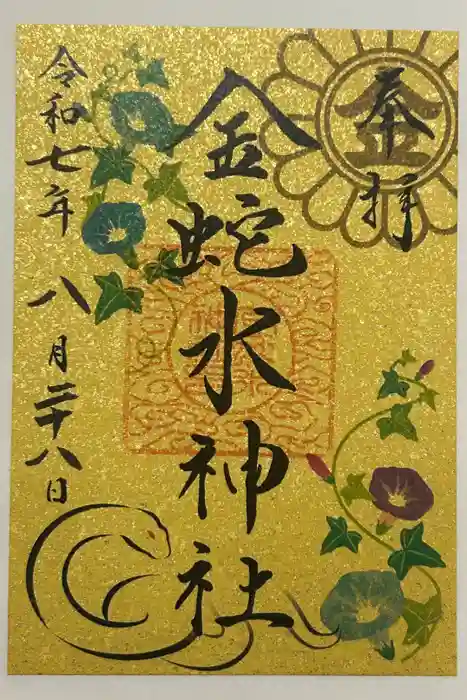 奉拝
金蛇水神社
令和七年
八月二十八日